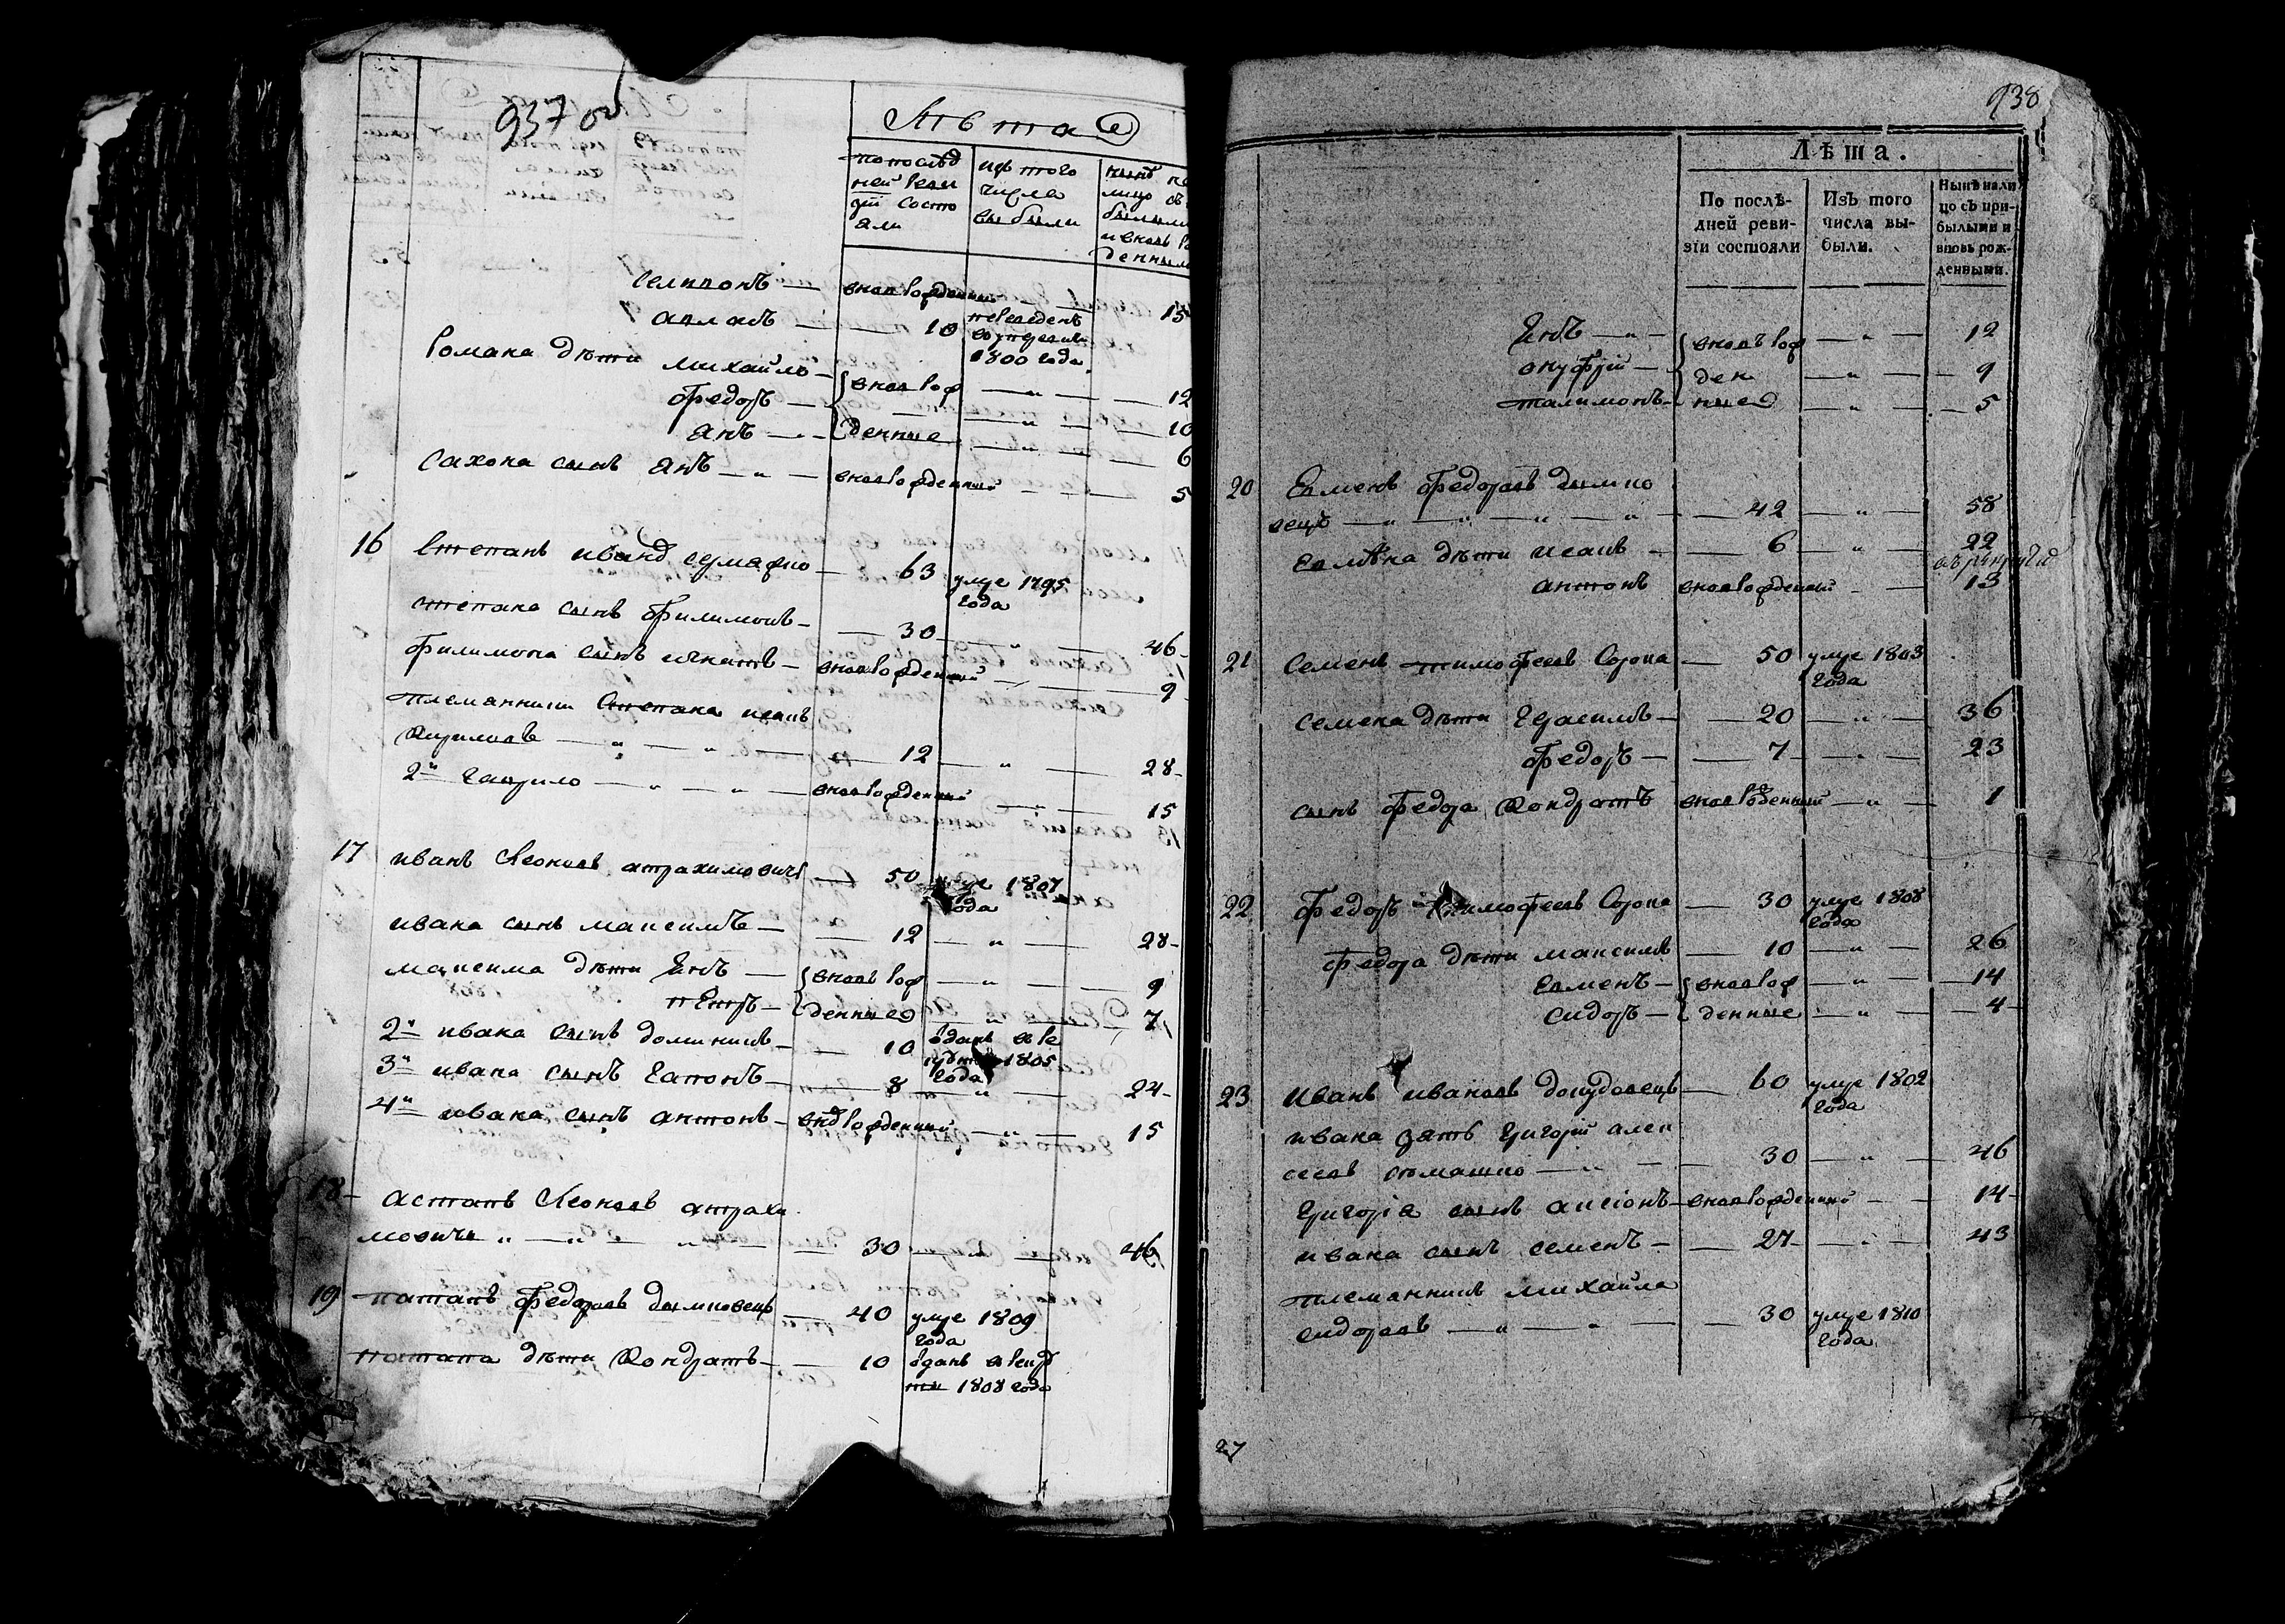 937 об
Лѣта
по послѣд
ней реви
зіи состо
яли
изъ того
числа
выбыли
нынѣ
лицо съ
былыми
и вновь
денными
вновь рожденный 15
10 переведенъ
1800 года
Романа дѣти Михайло { вновь рож — „ — 12
Федоръ — „ — 10
Янъ { денные — „ — 6
сынъ Янъ — „ — вновь рожденный — 5
16 Степанъ Иванов — 63 умре 1795
года
Степана сынъ Филимонъ — 30 — „ — 46
Филимона сынъ Игнатъ — вновь рожденный — 9
племянники Степана Исакъ
Кириловъ — „ — „ — 12 — „ — 28
2й Гаврило — „ — „ — вновь рожденный — „ — 15
17 Иванъ Леоновъ Атрахимовичъ — 50 умре 1807
года
Ивана сынъ Максимъ — 12 — „ — 28
Максима дѣти { вновь рож — „ — 9
Петръ { денные — „ — 7
2й Ивана сынъ Доминикъ — 10 вданъ в ре
круты 1805
года
3й Ивана сынъ Гапонъ — 8 — „ — 24
4й Ивана сынъ Антонъ — вновь рожденный — „ — 15
18 Астапъ Леоновъ Атрахи
мовичъ „ — „ — „ — 30 — „ — 46
19 Потапъ Федоровъ Дымковецъ — 40 умре 1809
года
Потапа дѣти Кондратъ — 10 вданъ в рекру
ты 1808 года
938
Лѣта.
По послѣ-
дней реви-
зіи состояли
Изъ того
числа вы-
были.
Нынѣ нали
цо съ при-
былыми и
вновь рож-
денными.
{ вновь рож — „ — 12
Онуфрій — ден — „ — 9
Палимонъ — ные — „ — 5
20 Федоровъ Дымко
вецъ — „ — „ — „ — „ — 42 — „ — 58
дѣти Исакъ — 6 — „ — 22
Антонъ вновь рожденный — 13
21 Семенъ Тимофеевъ Сорока — 50 умре 1803
года
Семена дѣти Герасимъ — 20 — „ — 36
Федоръ — 7 — „ — 23
сынъ Федора Кондратъ вновь рожденный — „ — 1
22 Федоръ Тимофеевъ Сорока — 30 умре 1808
года
Федора дѣти Максимъ — 10 — „ — 26
{ вновь рож — „ — 14
Сидоръ — { денные — „ — 4
23 Иванъ Ивановъ — 60 умре 1802
года
Ивана зять Григорій Алек
сеевъ — „ — 30 — „ — 46
Григорія сынъ — вновь рожденный — 14
Ивана сынъ Семенъ — 27 — „ — 43
племянникъ Михайла
Сидоровъ — „ — „ — 30 умре 1810
года
27